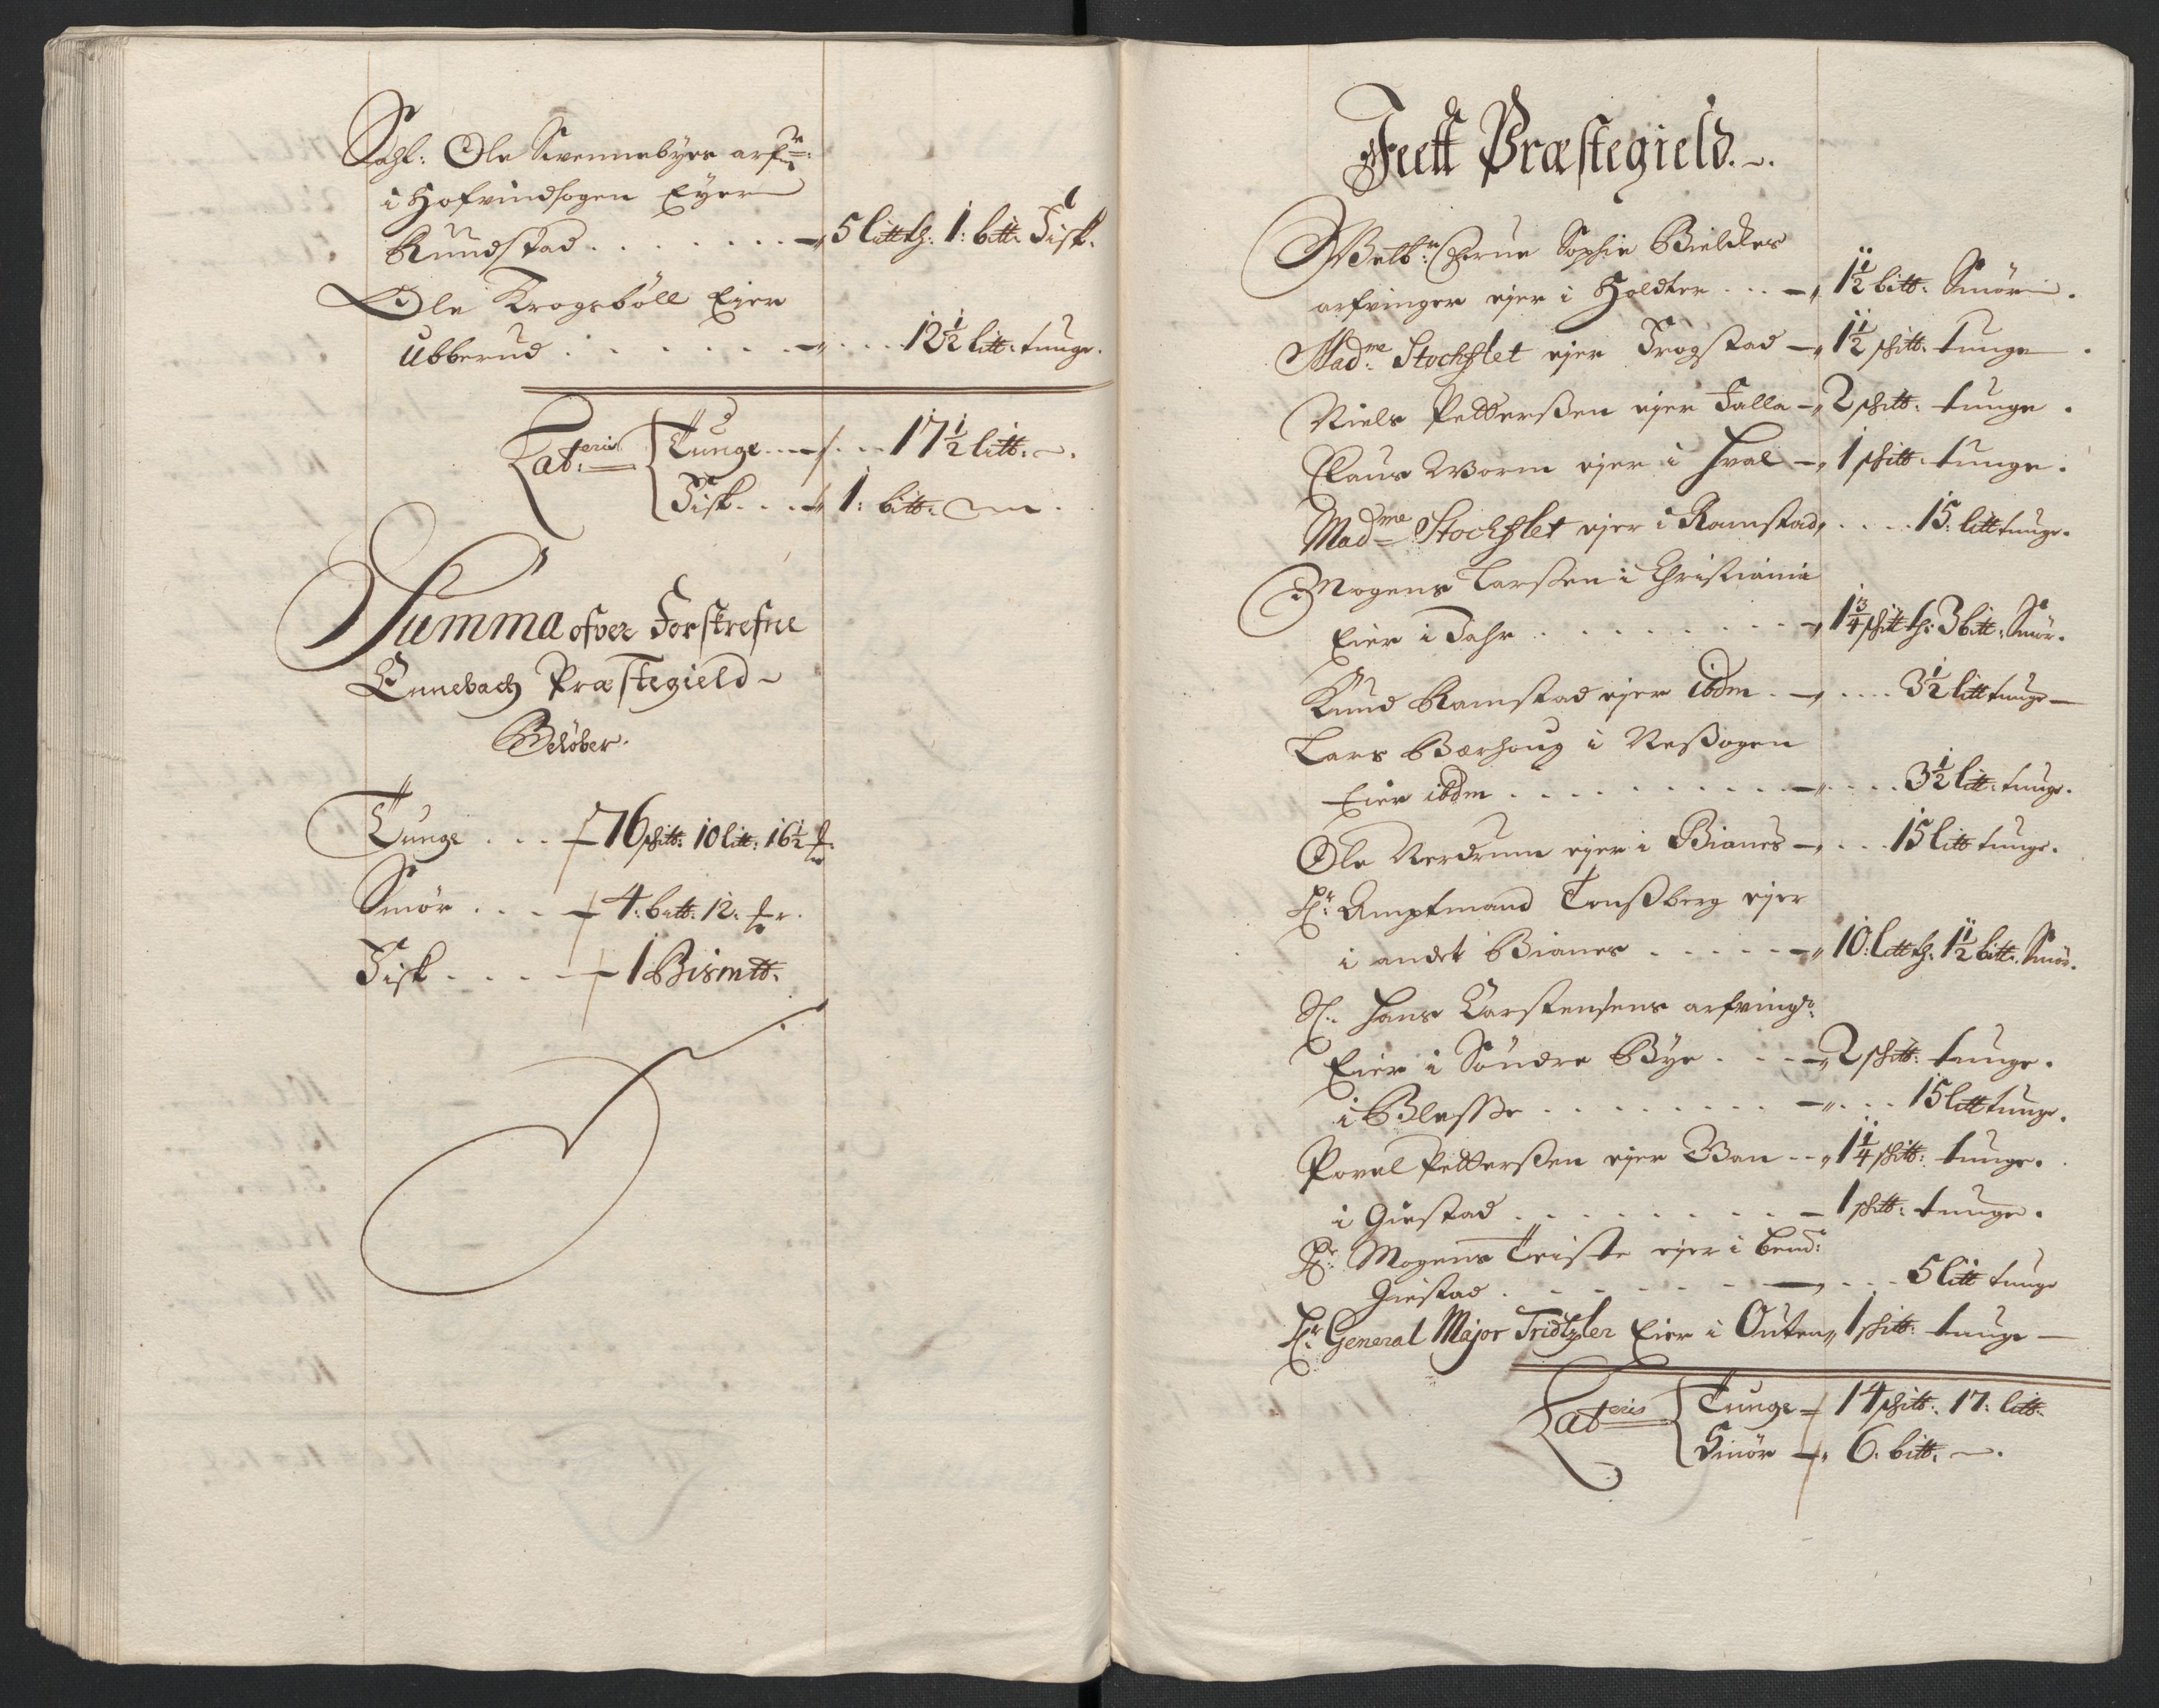 Sahl: Ole Svennebyes arf:
i Hofvindsogen Eyer
Rundstad . . . . . . . . – 5 litt tg: 1: bitt: Fisk.
Ole Krogsböll Eyer
Ubberud . . . . . . . – . . . 12½ litt: tunge.
Lateris { Tunge . . . – . . 17½ litt: ~.
Fisk . . . – 1: bitt: ~
Summa ofver Forskrefne
Ennebach Præstegield ~
Beløber.
Tunge . . . – 76 skitt: 10 litt: 16½
Smør . . . – 4: bitt: 12:
Fisk . . . . – 1 Bismtt:
Feett Præstegield. ~.
Welb: Frue Sophie Bielckes
arfvinger ejer i Holdter . . . – 1½ bitt: Smör.
Madme Stochflet ejer Trogstad – 1½ skitt: tunge.
Niels Pedderßen ejer Falla – 2 skitt: tunge.
Claus Worm ejer i Hval – 1 skitt: tunge.
Madme Stochflet ejer i Ramstad, . . . . 15: litt tunge.
Mogens Larßen i Christiania
Eier i Dahr . . . . . . . . . – 1¾ skitt tg: 3 bitt: Smör.
Knud Ramstad ejer ibdm . – . . . . 3½ litt tunge –
Lars Bærhoug i Neßogen
Eier ibdm . . . . . . . . . . . – . . . . 3½ litt: tunge.
Ole Nerdrum ejer i Bianes – . . . 15 litt tunge.
Hr: Amptmand Tonßberg ejer
i andet Bianes . . . . . – 10: litt tg: 1½ bitt: Smör.
Sl. Hans Carstensens arfving:
Eier i Söndre Bye . . . – 2 skitt: tunge.
i Blesße . . . . . . . . . – . . . 15 litt tunge.
Povel Pedderßen ejer Wan . . 1¼ skitt: tunge.
i Giestad . . . . . . . . . – 1 skitt: tunge.
Hr: Mogens Triste ejer i bemd:
Giestad . . . . . . . – . . . 5 litt tunge
Hr: General Major Tridtzler Eier i Outen, 1 skitt: tunge –
Lateris { Tunge – 14 skitt: 17: litt:
Smör – 6: bitt: ~.